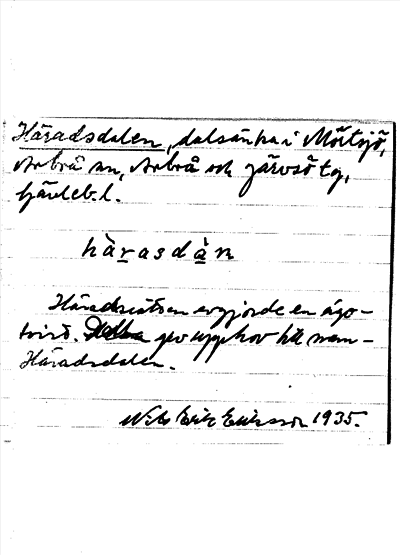 Häradsdalen, dalsänka i Mörtsjö,
Arbrå sn, Arbrå och Järvsö tg,
Gävleb.l.
hàrasdàn
Häradsrätten avgjorde en ägo-
tvist. Detta gev upphov till namn-
Häradsdalen.
Nils Erik Eriksson 1935.